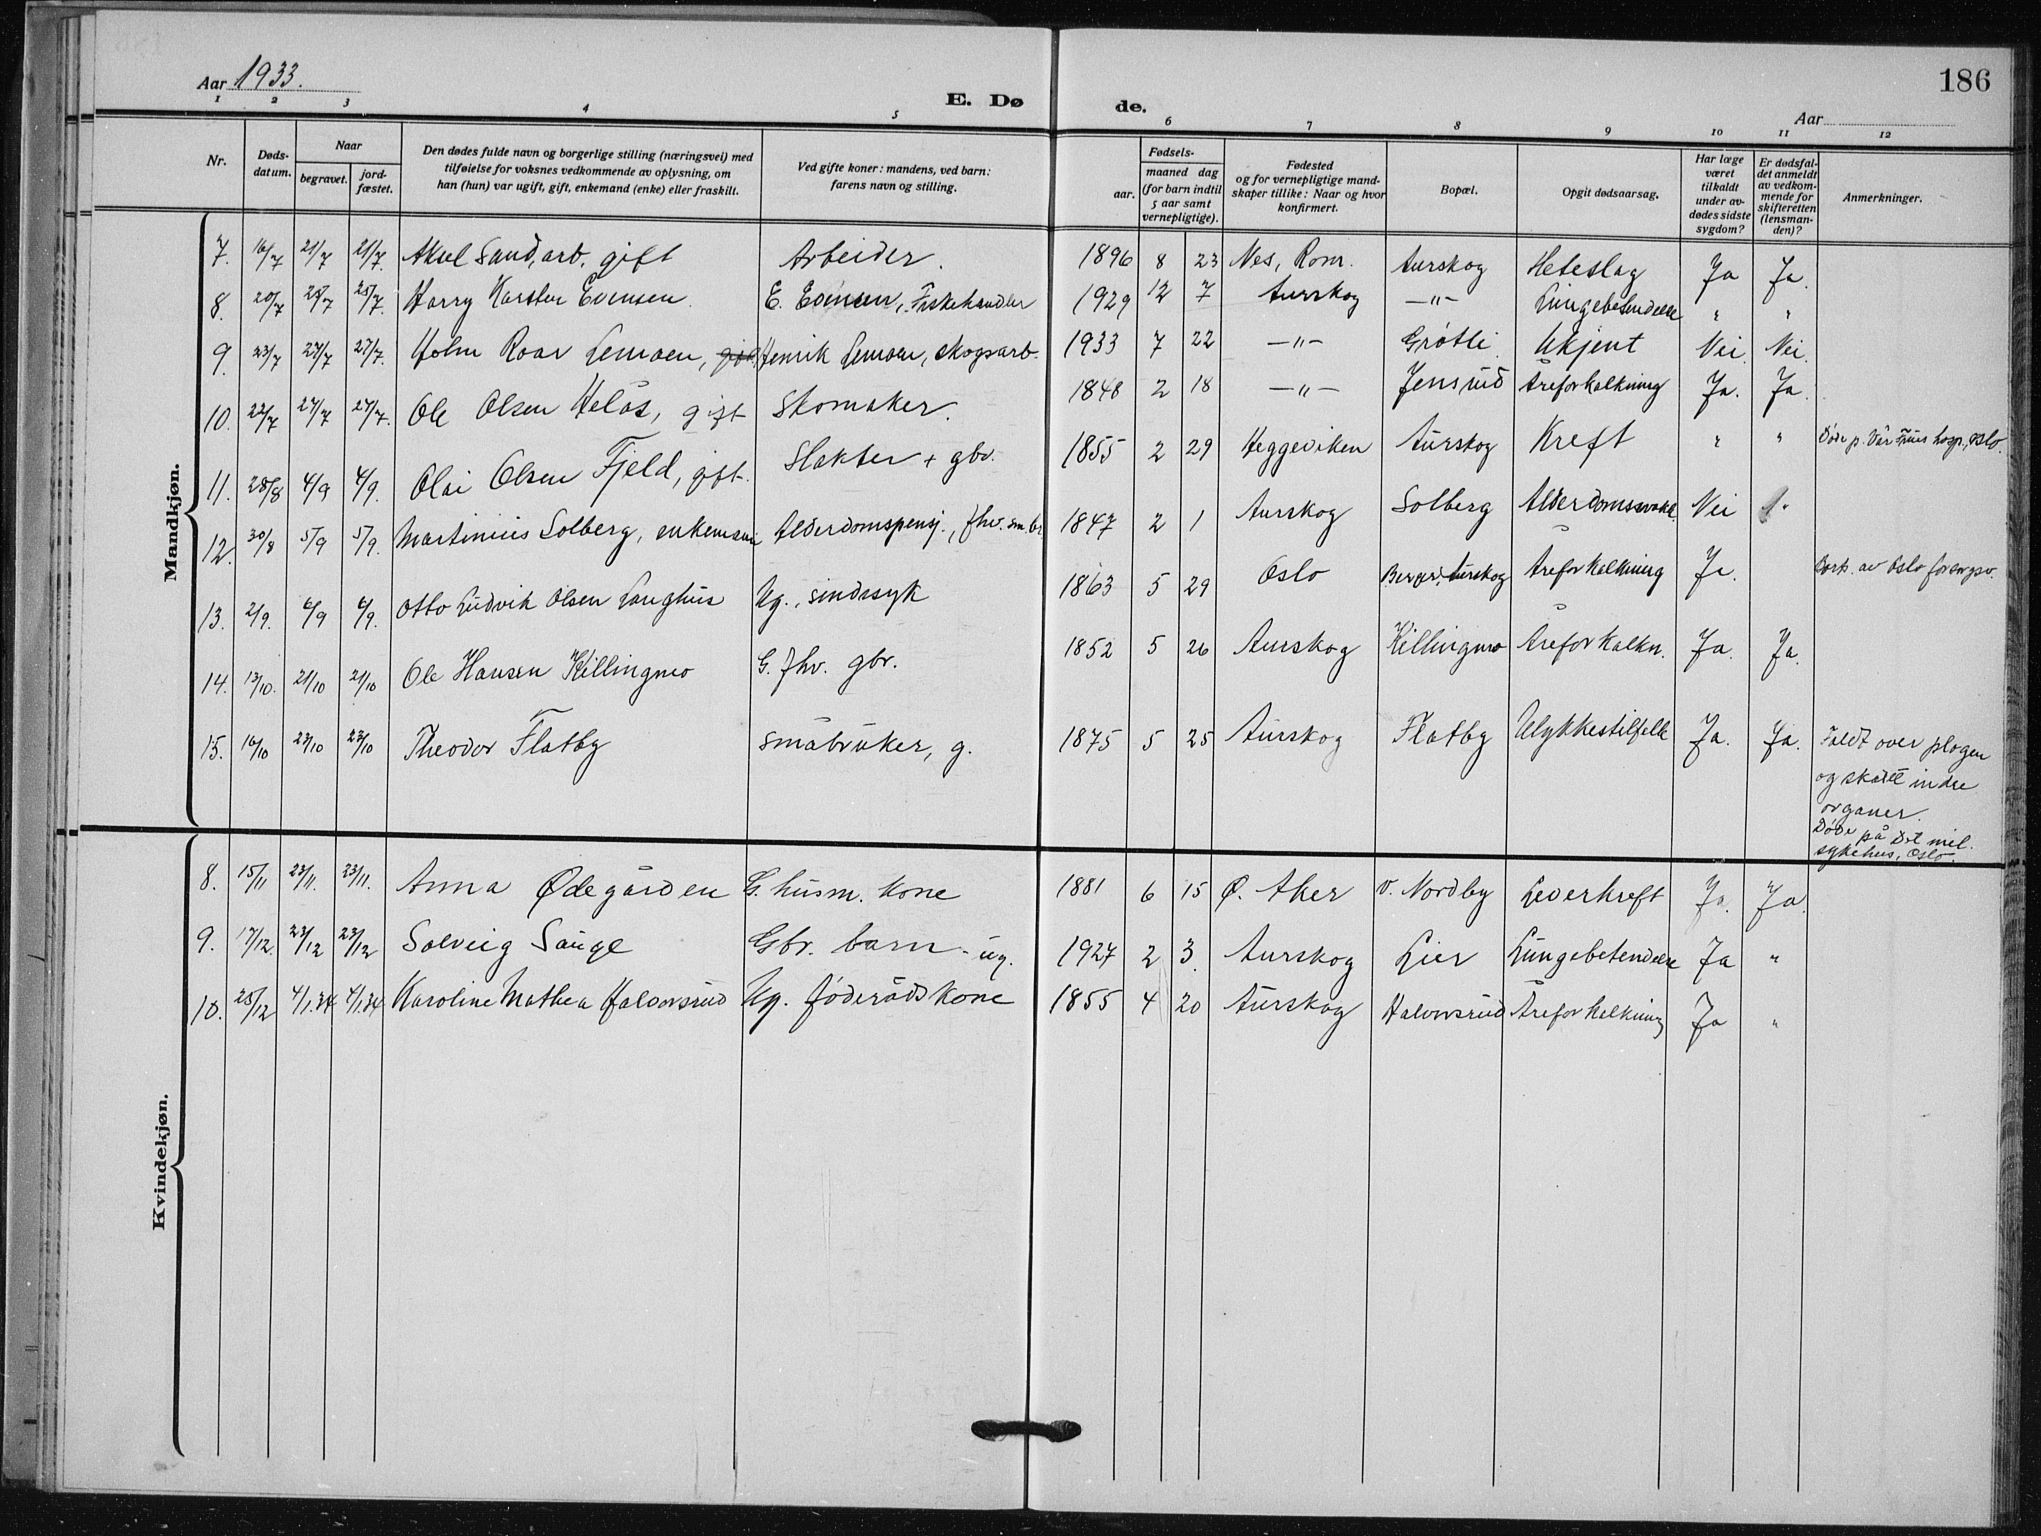 Aar 1933.
E. Døde.
Aar
186
1 2 3 4 5 6 7 8 9 10 11 12
Nr.
Døds-
datum.
Naar
begravet.
jord-
fæstet.
Den dødes fulde navn og borgerlige stilling (næringsvei) med
tilføielse for voksnes vedkommende av oplysning, om
han (hun) var ugift, gift, enkemand (enke) eller fraskilt.
Ved gifte koner: mandens, ved barn:
farens navn og stilling.
Fødsels-
aar.
maaned dag
(for barn indtil
5 aar samt
vernepligtige).
Fødested
og for vernepligtige mand-
skaper tillike: Naar og hvor
konfirmert.
Bopæl.
Opgit dødsaarsag.
Har læge
været
tilkaldt
under av-
dødes sidste
sygdom?
Er dødsfal-
det anmeldt
av vedkom-
mende for
skifteretten
(lensman-
den)?
Anmerkninger.
Mandkjøn.
7. 16/7 21/7 21/7. Aksel Sand, arb. gift Arbeider. 1896 8 23 Nes, Rom. Aurskog Heteslag Ja Ja.
8. 20/7 25/7 25/7. Harry Karsten Evensen. E. Evensen, Fiskehandler 1929 12 7 Aurskog —"— Lungebetendelse " "
9. 23/7 27/7 27/7. Holm Roar Lemoen, Henrik Lemoen, skogsarb. 1933 7 22 —"— Grøtli Ukjent Nei. Nei.
10. 22/7 27/7 27/7. Ole Olsen Helås, gift Skomaker. 1848 2 18 —"— Jensrud Åreforkalkning Ja. Ja.
11. 28/8 4/9 4/9. Olai Olsen Fjeld, gift. Slakter + gbr. 1855 2 29 Heggeviken Aurskog Kreft " " Døde p. Vår Frues hosp., Oslo.
12. 30/8 5/9 5/9. Martinius Solberg, enkemann Alderdomspensj., fhv. sm.br. 1847 2 1 Aurskog Solberg Alderdomssvakh. Nei "
13. 2/9. 6/9 6/9. Otto Ludvik Olsen Langhus Ug., sindssyk 1863 5 29 Oslo Berger, Aurskog Åreforkalkning Ja. av Oslo forsorgsv.
14. 13/10. 21/10 21/10 Ole Hansen Killingmo G. fhv. gbr. 1852 5 26 Aurskog Killingmo Åreforkalkn. Ja. Ja.
15. 16/10 23/10 23/10 Theodor Flatby småbruker, g. 1875 5 25 Aurskog Flatby Ulykkestilfelle Ja. Ja. Faldt over plogen
og skadet indre
organer.
Døde på Det mil.
sykehus, Oslo.
Kvindekjøn.
8. 15/11 23/11. 23/11. Anna Ødegården G. husm. kone 1881 6 15 Ø. Aker v. Nordby Leverkreft Ja. Ja.
9. 17/12. 23/12 23/12 Solveig Sauge Gbr. barn - ug. 1927 2 3. Aurskog Lier Lungebetendelse Ja "
10. 28/12 4/1.34. 4/1.34. Karoline Mathea Halvorsrud Ug. føderådskone 1855 4 20 Aurskog Halvorsrud Åreforkalkning Ja "